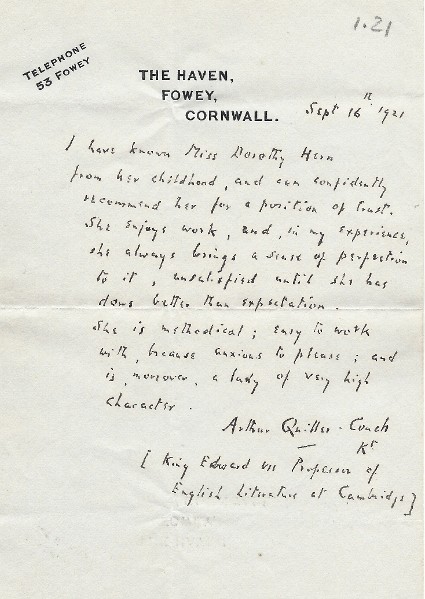 1.21
TELEPHONE
53 FOWEY
THE HAVEN,
FOWEY,
CORNWALL.
Sept 16th 1921
I have known Miss Dorothy Hern
from her childhood, and can confidently
recommend her for a position of trust.
She enjoys work, and, in my experience,
she always brings a sense of perfection
to it, unsatisfied until she has
done better than expectation.
She is methodical; easy to work
with, because anxious to please; and
is, moreover, a lady of very high
character.
Arthur Quiller-Couch
Kt
[King Edward VII Professor of
English Literature at Cambridge]